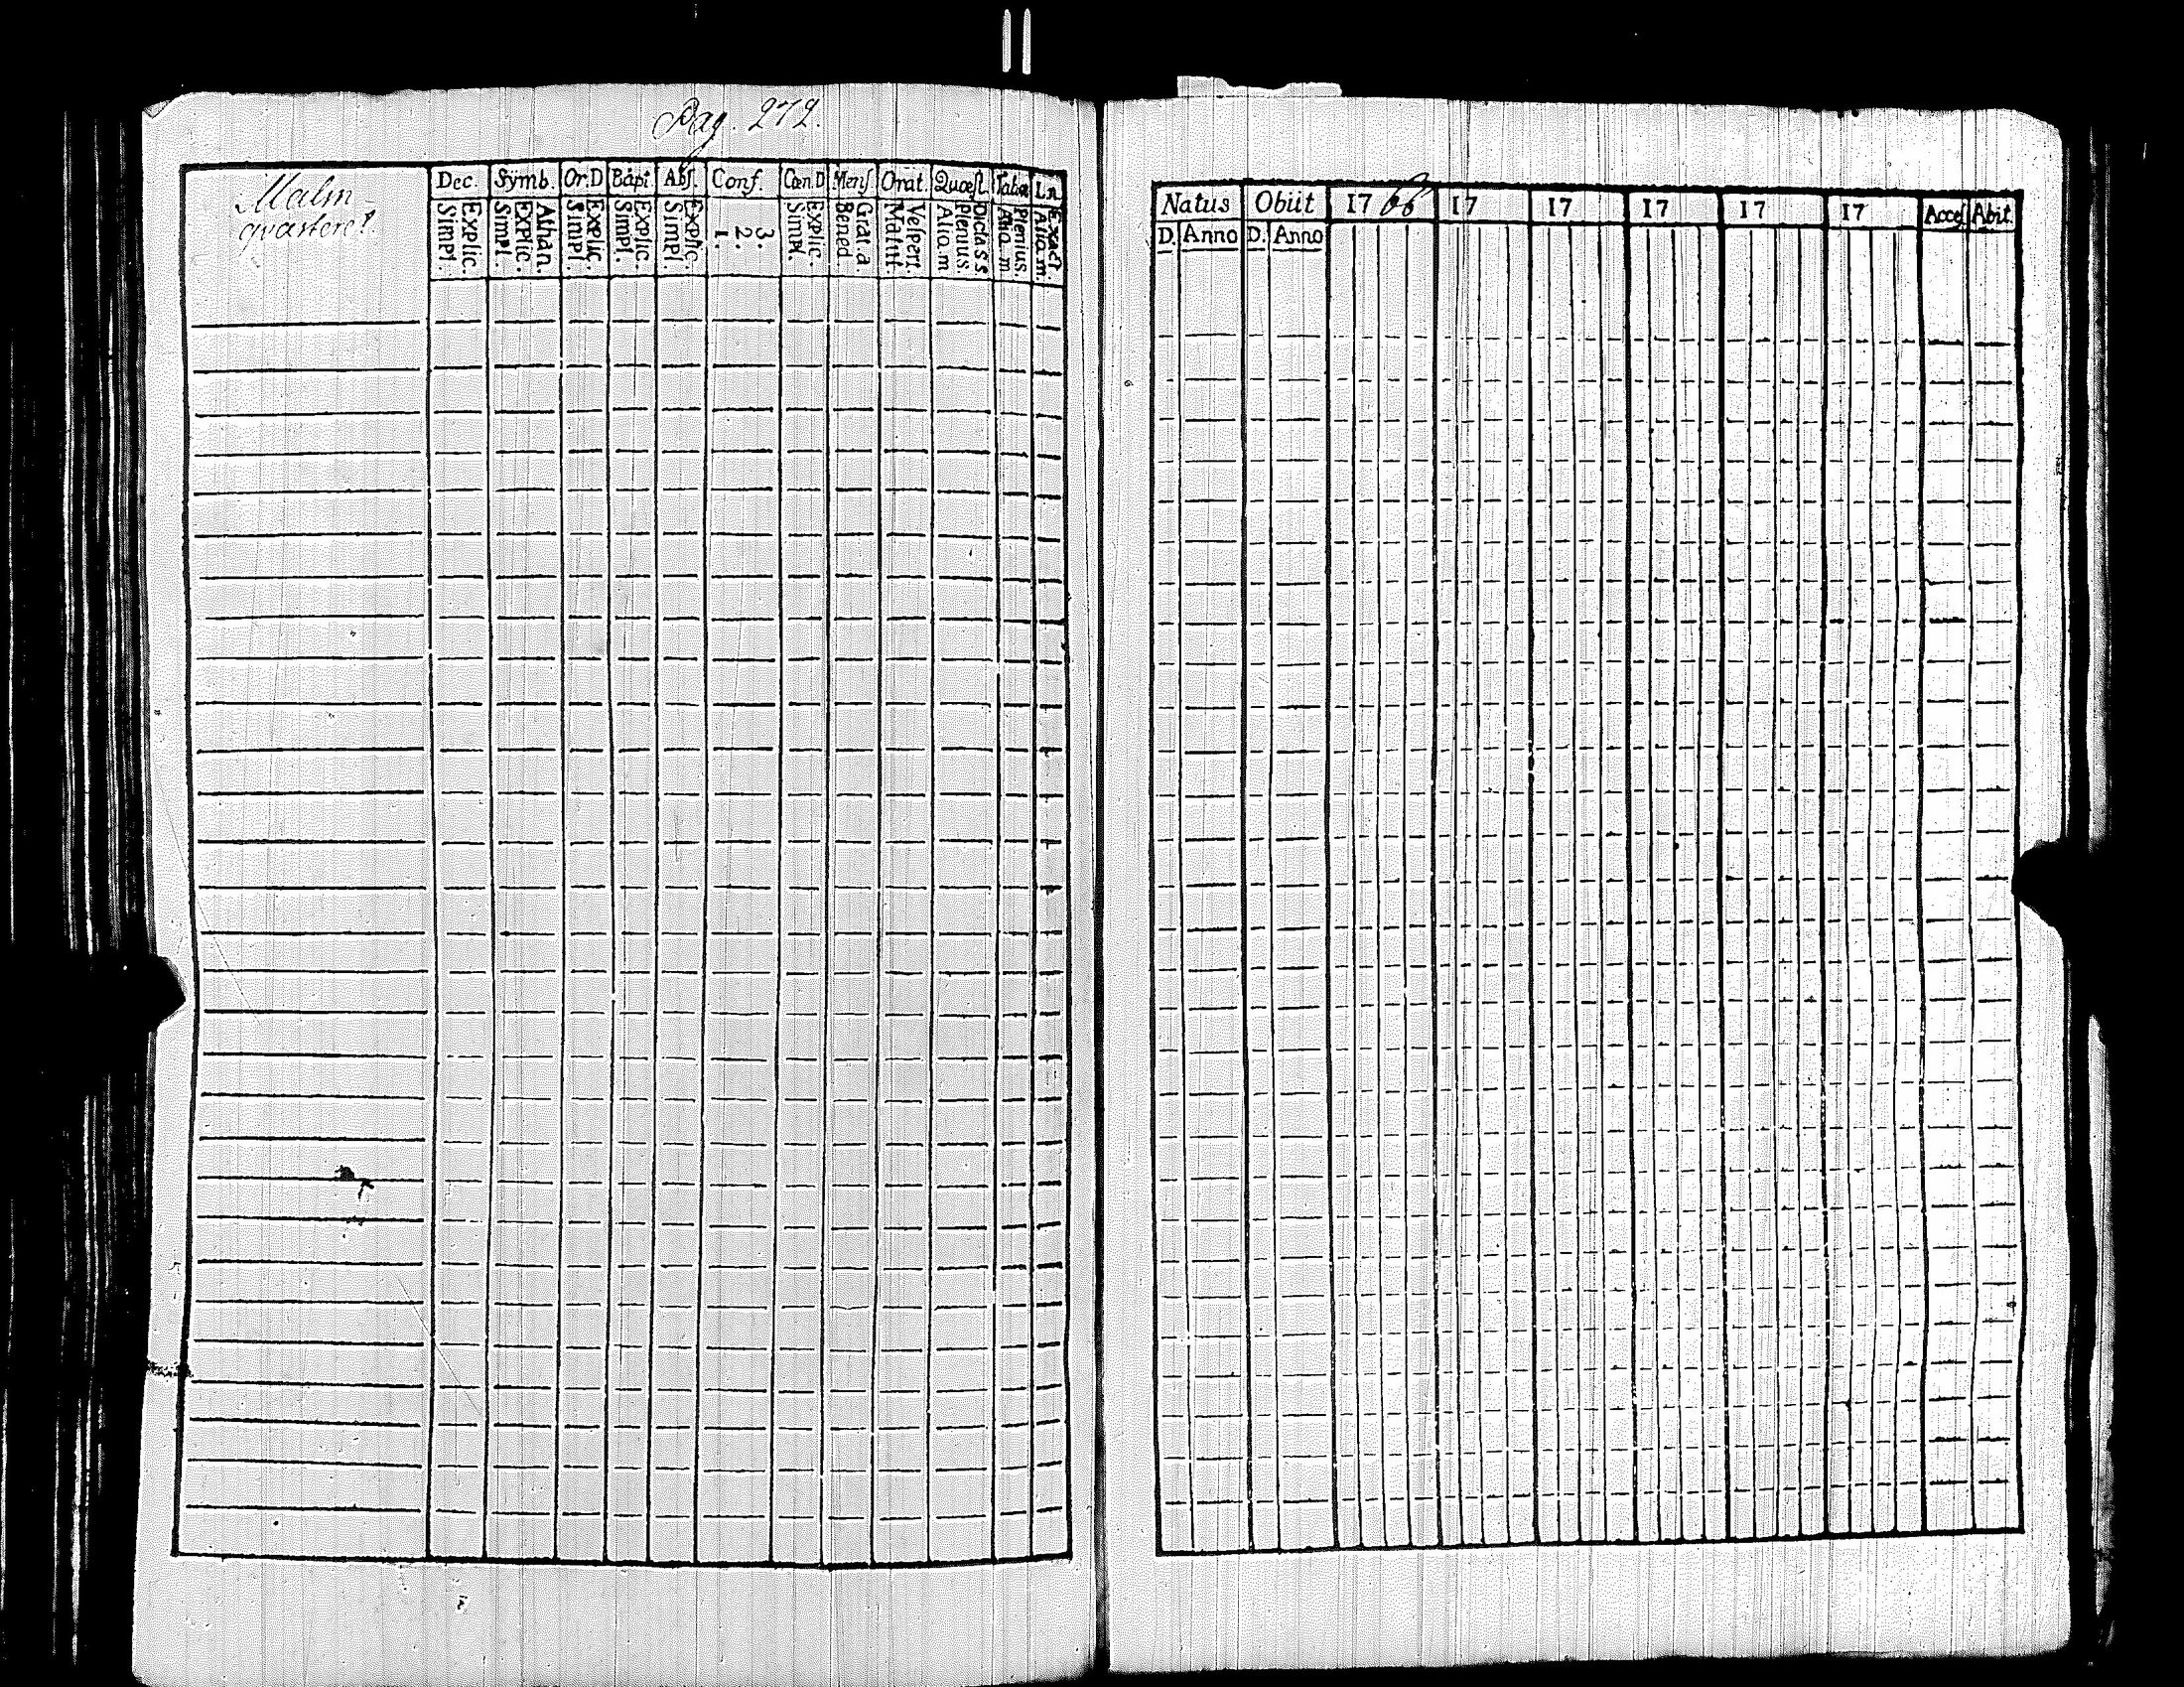 Pag. 272.
Malm-
qvarteret.
Dec. Symb. Or.D Bapt. Abs. Conf. Cœn.D Mens Orat. Quæst. Tabæ Ln.
Simpl. Explic. Simpl. Explic. Athan. Simpl. Explic. Simpl. Explic. Simpl. Explic. 1. 2. 3. Simpl. Explic. Bened. Grat. a. Matut. Vespert. Alio. m Plenius. Dicta S S. Alio. m. Plenius. Alio. m. Exact
Natus Obiit 17 66 17 17 17 17 17 Acces Abit.
D. Anno D. Anno